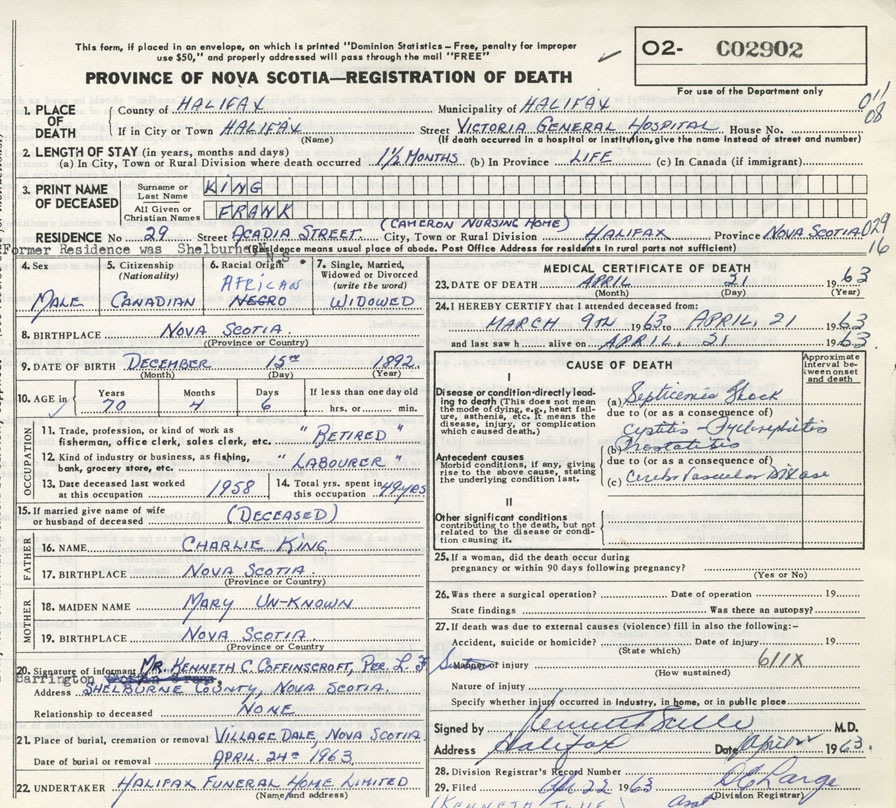 This form, if placed in an envelope, on which is printed "Dominion Statistics—Free, penalty for improper
use $50," and properly addressed will pass through the mail "FREE"
PROVINCE OF NOVA SCOTIA—REGISTRATION OF DEATH
O2- C02902
For use of the Department only
011
08
1. PLACE OF DEATH
County of HALIFAX Municipality of HALIFAX
If in City or Town HALIFAX Street VICTORIA GENERAL HOSPITAL House No.
(Name) (If death occurred in a hospital or institution, give the name instead of street and number)
2. LENGTH OF STAY (in years, months and days)
(a) In City, Town or Rural Division where death occurred 1½ MONTHS (b) In Province LIFE (c) In Canada (if immigrant)
3. PRINT NAME OF DECEASED
Surname or Last Name KING
All Given or Christian Names FRANK
(CAMERON NURSING HOME)
RESIDENCE No 29 Street ACADIA STREET. City, Town or Rural Division HALIFAX Province NOVA SCOTIA
029
16
Former Residence was Shelburne N.S
(Residence means usual place of abode. Post Office Address for residents in rural parts not sufficient)
4. Sex
MALE
5. Citizenship
(Nationality)
CANADIAN
6. Racial Origin
AFRICAN
NEGRO
7. Single, Married, Widowed or Divorced
(write the word)
WIDOWED
8. BIRTHPLACE NOVA SCOTIA.
(Province or Country)
9. DATE OF BIRTH DECEMBER 15TH 1892
(Month) (Day) (Year)
10. AGE in
Years 70
Months 4
Days 6
If less than one day old
hrs. or min.
OCCUPATION
11. Trade, profession, or kind of work as
fisherman, office clerk, sales clerk, etc. "RETIRED"
12. Kind of industry or business, as fishing,
bank, grocery store, etc. "LABOURER"
13. Date deceased last worked
at this occupation 1958
14. Total yrs. spent in
this occupation 49 YRS
15. If married give name of wife
or husband of deceased (DECEASED)
FATHER
16. NAME CHARLIE KING
17. BIRTHPLACE NOVA SCOTIA.
(Province or Country)
MOTHER
18. MAIDEN NAME MARY UN-KNOWN
19. BIRTHPLACE NOVA SCOTIA.
(Province or Country
20. Signature of informant MR. KENNETH C. COFFINSCROFT, PER. L. F
Barrington
Address SHELBURNE COUNTY, NOVA SCOTIA.
Relationship to deceased NONE
21. Place of burial, cremation or removal VILLAGE DALE, NOVA SCOTIA
Date of burial or removal APRIL. 24TH 1963
22. UNDERTAKER HALIFAX FUNERAL HOME LIMITED
(Name and address)
MEDICAL CERTIFICATE OF DEATH
23. DATE OF DEATH APRIL 21 1963
(Month) (Day) (Year)
24. I HEREBY CERTIFY that I attended deceased from:
MARCH 9TH 1963 to APRIL, 21 1963
and last saw h alive on APRIL. 21 1963.
CAUSE OF DEATH
Approximate interval between onset and death
I
Disease or condition directly leading to death (This does not mean the mode of dying, e.g., heart failure, asthenia, etc. It means the disease, injury, or complication which caused death.)
(a) Septicemia Shock
due to (or as a consequence of)
Cystitis - Pyelonephritis
(b) Prostatitis
Antecedent causes
Morbid conditions, if any, giving rise to the above cause, stating the underlying condition last.
due to (or as a consequence of)
(c) Cerebr Vascular Disease
II
Other significant conditions
contributing to the death, but not related to the disease or condition causing it.
25. If a woman, did the death occur during
pregnancy or within 90 days following pregnancy?
(Yes or No)
26. Was there a surgical operation? Date of operation 19
State findings Was there an autopsy?
27. If death was due to external causes (violence) fill in also the following:—
Accident, suicide or homicide? Date of injury 19
(State which)
Manner of injury 611X
(How sustained)
Nature of injury
Specify whether injury occurred in industry, in home, or in public place
Signed by M.D.
Address Halifax Date April 1963.
28. Division Registrar's Record Number
29. Filed Apl 22 1963
(Division Registrar)